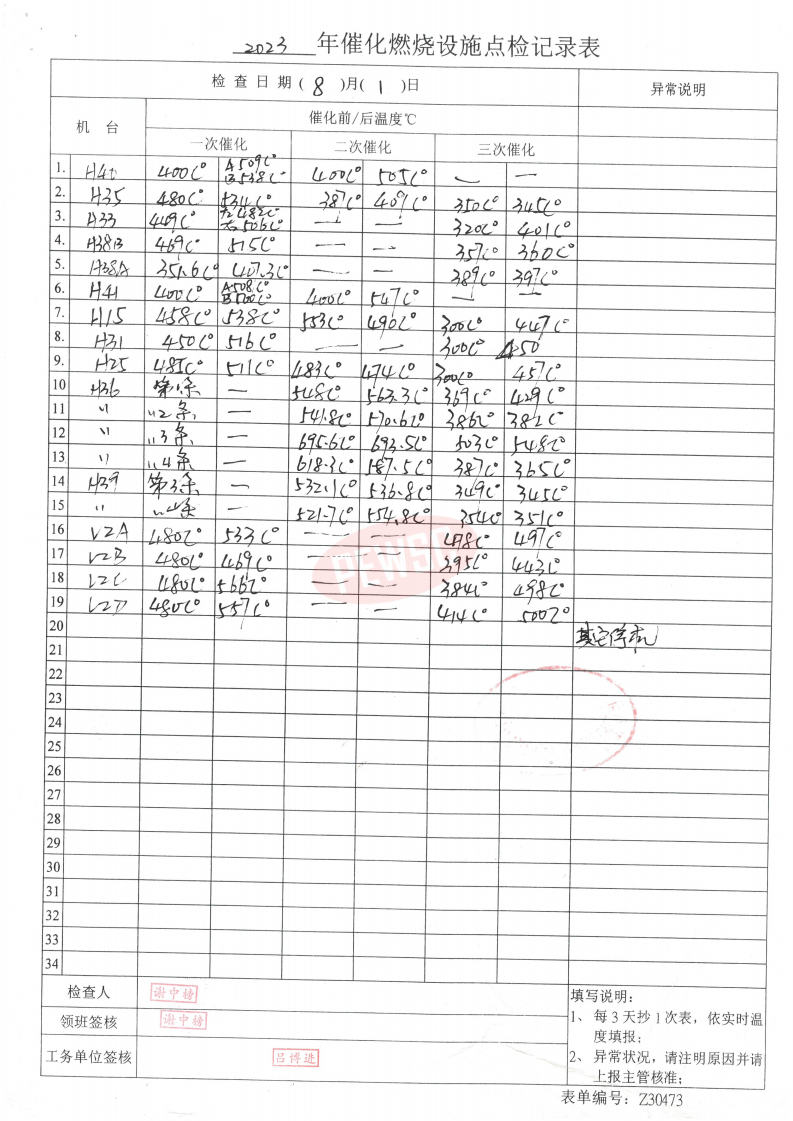 2023 年催化燃烧设施点检记录表
检查日期(8)月(1)日 异常说明
机 台 催化前/后温度℃
一次催化 二次催化 三次催化
1. H40 400C° A 509C° B 538C° 400C° 505C° — —
2. H35 480C° 534C° 387C° 409C° 350C° 345C°
3. H33 449C° 左482C° 右506C° — — 320C° 401C°
4. H38B 469C° 515C° — — 357C° 360C°
5. H38A 351.6C° 407.3C° — — 389C° 397C°
6. H41 400C° A508C° B500C° 400C° 547C° — —
7. H15 458C° 538C° 553C° 490C° 300C° 447C°
8. H31 450C° 516C° — — 300C° 450
9. H25 485C° 511C° 483C° 474C° 300C° 457C°
10 H36 第1条 — 548C° 563.3C° 369C° 429C°
11 〃 〃2条 — 541.8C° 570.6C° 386C° 382C°
12 〃 〃3条 — 695.6C° 693.5C° 503C° 548C°
13 〃 〃4条 — 618.3C° 587.5C° 387C° 365C°
14 H39 第3条 — 532.1C° 536.8C° 349C° 345C°
15 〃 〃4条 — 521.7C° 554.8C° 354C° 351C°
16 V2A 480C° 533C° — — 478C° 497C°
17 V2B 480C° 469C° — — 395C° 443C°
18 V2C 480C° 566C° — — 384C° 498C°
19 V2D 480C° 557C° — — 414C° 500C°
20 其它停机
21
22
23
24
25
26
27
28
29
30
31
32
33
34
检查人 谢中榜
领班签核 谢中榜
工务单位签核 吕博进
填写说明:
1、每3天抄1次表,依实时温
度填报;
2、异常状况,请注明原因并请
上报主管核准;
表单编号:Z30473